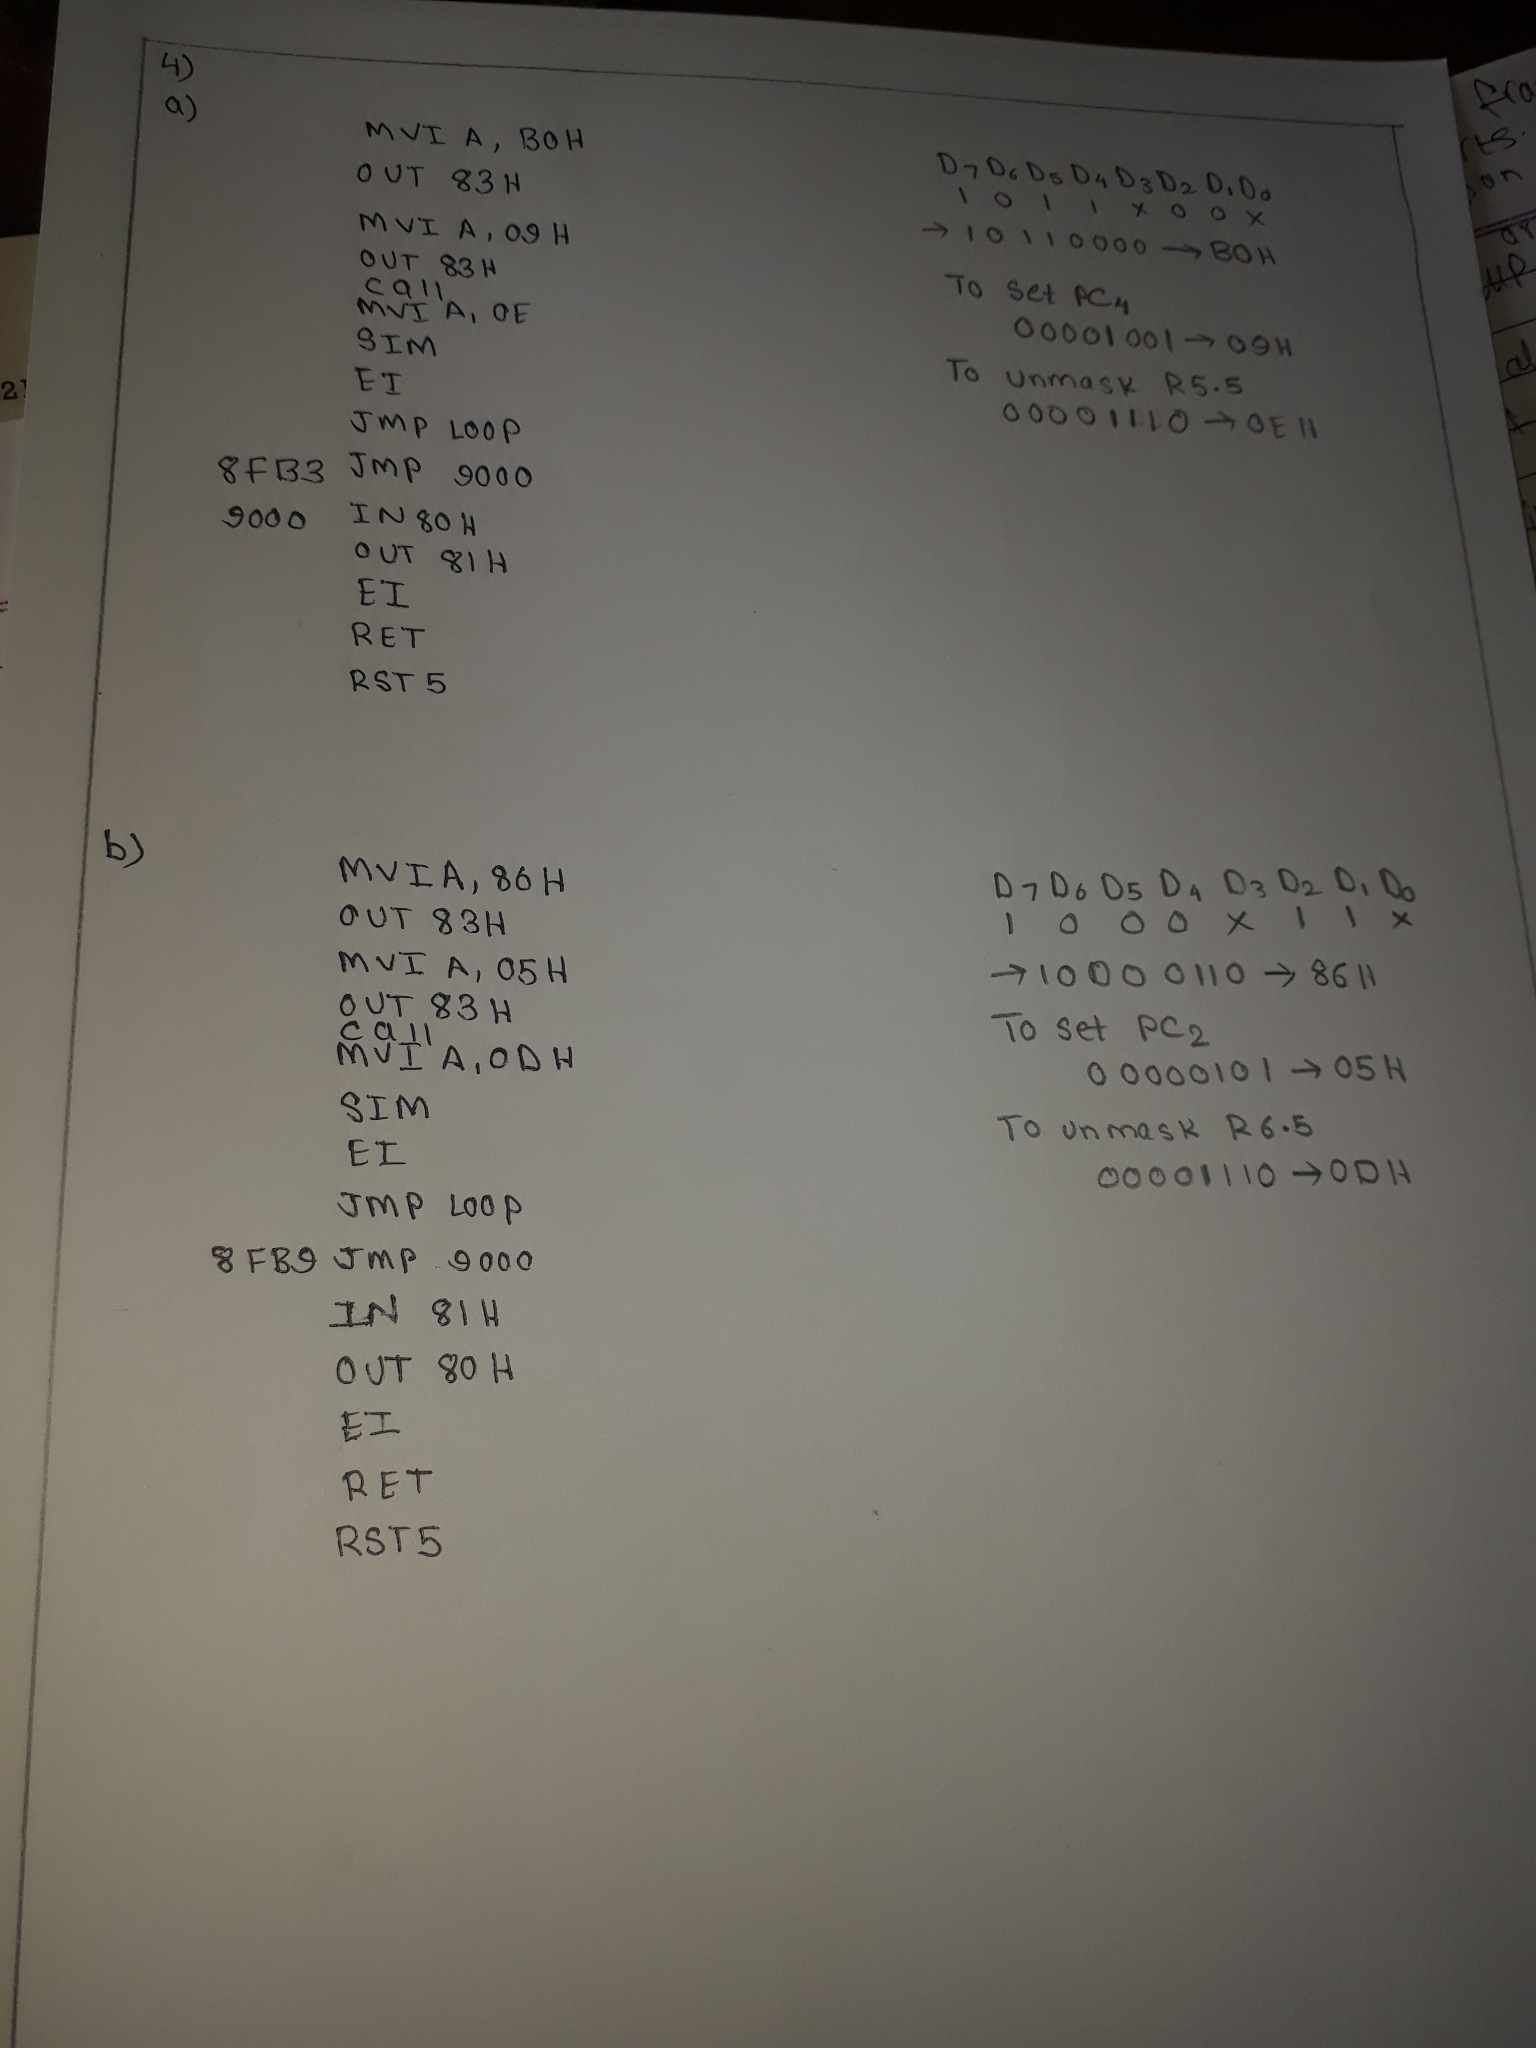 4)
a)
MVI A, B0H
OUT 83H
MVI A, 09H
OUT 83H
Call
MVI A, 0E
SIM
EI
JMP LOOP
8FB3 JMP 9000
9000 IN 80H
OUT 81H
EI
RET
RST 5
D7 D6 D5 D4 D3 D2 D1 D0
1 0 1 1 x 0 0 x
→ 10110000 → B0H
To set PC4
00001001 → 09H
To unmask R5.5
00001110 → 0EH
b)
MVI A, 86H
OUT 83H
MVI A, 05H
OUT 83H
Call
MVI A, 0DH
SIM
EI
JMP LOOP
8FB9 JMP 9000
IN 81H
OUT 80H
EI
RET
RST 5
D7 D6 D5 D4 D3 D2 D1 D0
1 0 0 0 x 1 1 x
→ 1000 0110 → 86H
To set PC2
00000101 → 05H
To unmask R6.5
00001110 → 0DH